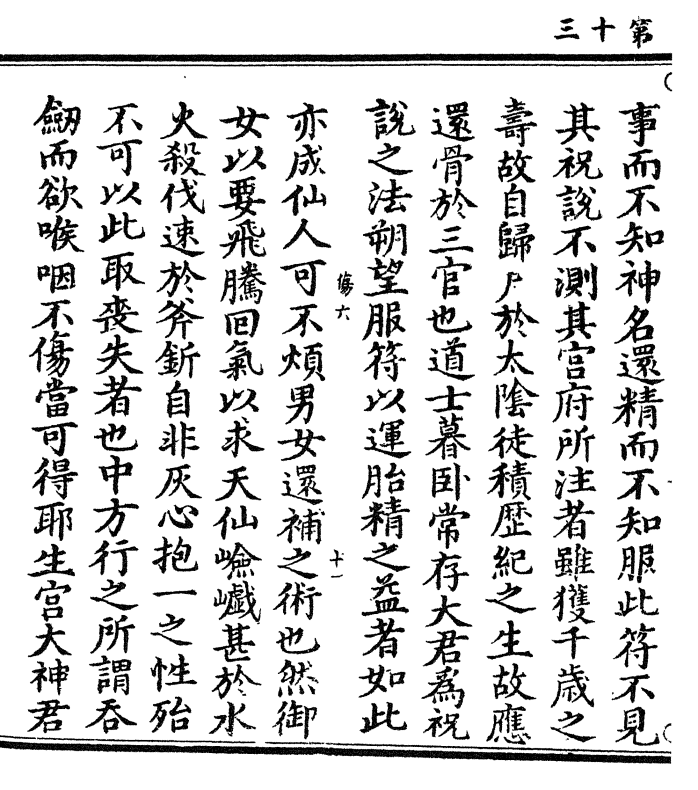 第十三
事而不知神名還精而不知服此符不見
其祝說不測其宮府所注者雖獲千歲之
壽故自歸尸於太陰徒積歷紀之生故應
還骨於三官也道士暮卧常存大君為祝
說之法朔望服符以運胎精之益者如此
傷六
亦成仙人可不煩男女還補之術也然御
十一
女以要飛騰回氣以求天仙嶮巇甚於水
火殺伐速於斧釿自非灰心抱一之性殆
不可以此取喪失者也中方行之所謂吞
劒而欲喉咽不傷當可得耶生宮大神君